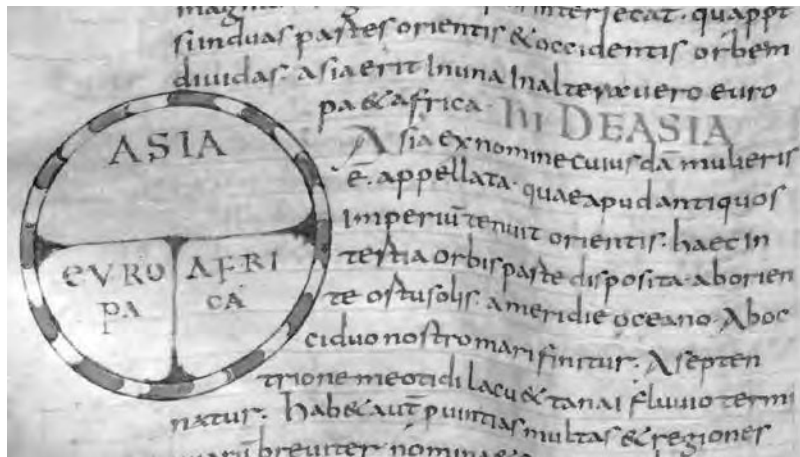 interſecat · quappt
ſiinduas partes orientis & occidentis orbem
diuidas · asia erit In una In altera uero euro
pa & africa · III DE ASIA
Asia ex nomine cuiusdā mulieris
ē appellata · quae apud antiquos
Imperiū tenuit orientis · haec In
tertia orbis parte disposita · ab orien
te ortu solis · a meridie oceano · Ab oc
ciduo nostro mari finitur · A septen
trione meotidi lacu & tanai fluuio termi
natur · hab& aut puintias multas & regiones
breuiter nomina
ASIA
EVRO
PA
AFRI
CA